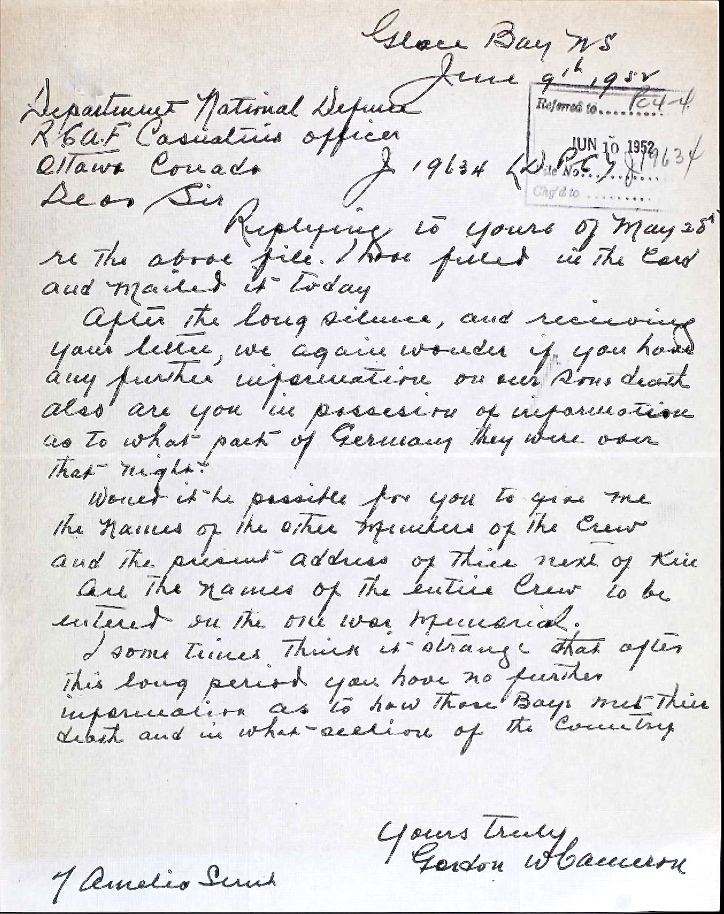 Glace Bay NS
June 9th 1952
Referred to.......... PC4-4
JUN 10 1952
File No.......... J19634
Chg'd to ..........
Department National Defence
RCAF Casualties officer
Ottawa Canada
J 19634 (D.P.C)
Dear Sir
Replying to yours of May 28th
re the above file. I have filled in the Card
and mailed it today
After the long silence, and recieving
your letter, we again wonder if you have
any further information on our sons death
also are you in possesion of information
as to what part of Germany they were over
that night.
Would it be possible for you to give me
the names of the other members of the Crew
and the present address of thier next of Kin
Are the names of the entire Crew to be
entered on the one war memorial.
I some times think it strange that after
this long period you have no further
information as to how those Boys met their
death and in what section of the Country
Yours truly
Gordon W Cameron
7 Amelia